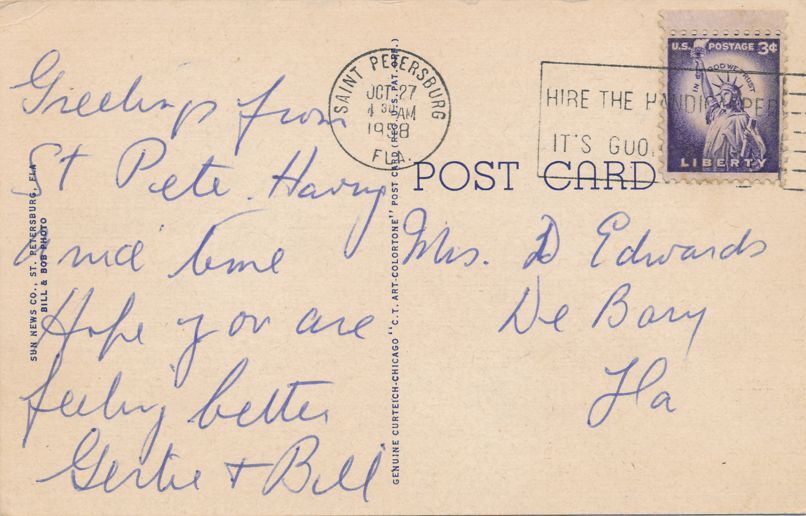 Greetings from
St Pete. Having
a nice time
Hope you are
feeling better
Gertie + Bill
SUN NEWS CO., ST. PETERSBURG, FLA
BILL & BOB PHOTO
GENUINE CURTEICH-CHICAGO "C.T. ART-COLORTONE" POST CARD (REG. U.S. PAT. OFF.)
SAINT PETERSBURG
OCT 27
4 30 AM
1958
FLA.
HIRE THE HANDICAPPED
IT'S
U.S. POSTAGE 3¢
IN GOD WE TRUST
LIBERTY
POST CARD
Mrs. D Edwards
De Bary
Fla